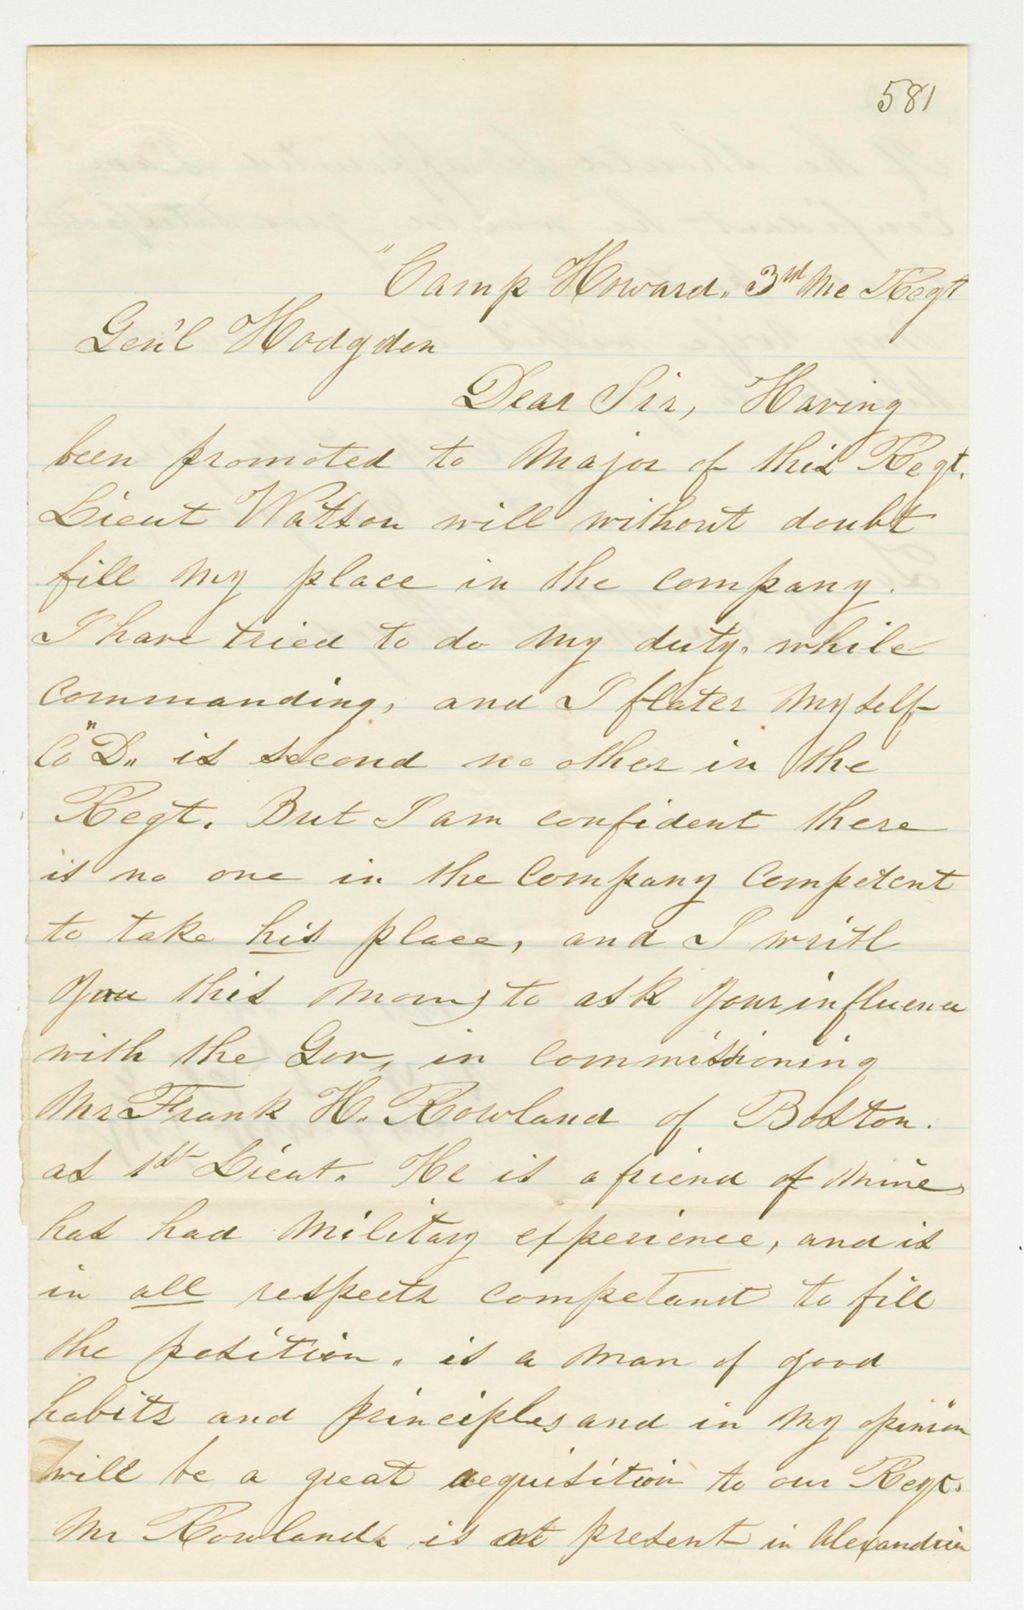 581
"Camp Howard. 3rd Me Regt
Gen'l Hodgdon
Dear Sir, Having
been promoted to Major of this Regt.
Lieut Watson will without doubt
fill my place in the company.
I have tried to do my duty, while
commanding, and I flater myself
Co "D" is second no other in the
Regt. But I am confident there
is no one in the Company Competent
to take his place, and I write
you this morn, to ask your influence
with the Gov, in commissioning
Mr Frank H. Rowland of Boston.
as 1st Lieut. He is a friend of mine
has had military experience, and is
in all respects competant to fill
the position. is a man of good
habits and principles and in my opinion
will be a great acquisition to our Regt.
Mr Rowland is at present in Alexandria